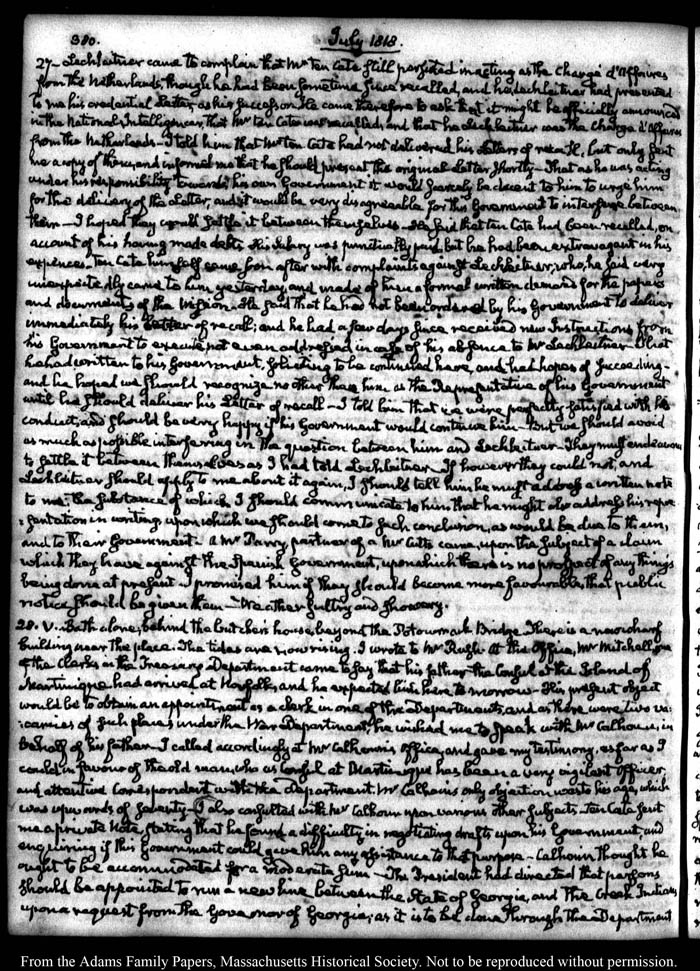 380. July 1818.
27— Lechleitner came to complain that Mr ten Cate still persisted in acting as the Chargé d'Affaires
from the Netherlands, though he had been sometime since recalled, and he, Lechleitner had presented
to me his credential Letter, as his successor. He came therefore to ask that it might be officially announced
in the National Intelligencer, that Mr ten Cate was recalled, and that he Lechleitner was the Chargé d'Affaires
from the Netherlands— I told him that Mr ten Cate had not delivered his Letters of recall, but only sent
me a copy of them, and informed me that he should present the original Letter shortly— That as he was acting
under his responsibility towards his own Government it would scarcely be decent to him to urge him
for the delivery of the Letter, and it would be very disagreeable for this Government to interfere between
them— I hoped they would settle it between themselves— He said that ten Cate had been recalled, on
account of his having made debts. His salary was punctually paid, but he had been extravagant in his
expences. Ten Cate himself came soon after with complaints against Lechleitner, who, he said very
unexpectedly came to him yesterday, and made of him a formal written demand for the papers
and documents of the Mission— He said that he had not been ordered by his Government to deliver
immediately his Letter of recall; and he had a few days since received new Instructions from
his Government to execute, not even addressed in case of his absence to Mr Lechleitner— That
he had written to his Government, soliciting to be continued here, and had hopes of succeeding—
and he hoped we should recognize no other than him as the Representative of his Government
until he should deliver his Letter of recall— I told him that we were perfectly satisfied with his
conduct, and should be very happy if his Government would continue him— But we should avoid
as much as possible interfering in the question between him and Lechleitner. They must endeavour
to settle it between themselves as I had told Lechleitner. If however they could not, and
Lechleitner should apply to me about it again, I should tell him he must address a written note
to me, the substance of which I should communicate to him that he might also address his repre
:sentation in writing, upon which we should come to such conclusion, as would be due to them,
and to their Government. A Mr Parry, partner of a Mr Citts came, upon the subject of a claim
which they have against the Spanish Government, upon which there is no prospect of any thing's
being done at present. I promised him if they should become more favourable, that public
notice should be given them— Weather sultry and showery.
28. V. Bath alone, behind the butcher's house, beyond the Potowmack Bridge. There is a new wharf
building near the place. The tides are now rising. I wrote to Mr Rush. At the Office, Mr Mitchell, one
of the clerks in the Treasury Department came to say that his father the Consul at the Island of
Martinique had arrived at Norfolk, and he expected him here to-morrow— His present object
would be to obtain an appointment as a clerk in one of the Departments, and as there were two va
:cancies of such places under the War Department, he wished me to speak with Mr Calhoun, in
behalf of his father— I called accordingly at Mr Calhoun's Office, and gave my testimony, as far as I
could in favour of the old man, who as Consul at Martinique has been a very vigilant Officer
and attentive correspondent with the department. Mr Calhoun's only objection was to his age, which
was upwards of seventy— I also consulted with Mr Calhoun upon various other subjects— Ten Cate sent
me a private Note, stating that he found a difficulty in negotiating drafts upon his Government, and
enquiring if this Government could give him any assistance to that purpose— Calhoun thought he
ought to be accommodated for a moderate sum— The President had directed that persons
should be appointed to run a new line between the State of Georgia, and the Creek Indians
upon a request from the Governor of Georgia; as it is to be done through the Department
From the Adams Family Papers, Massachusetts Historical Society. Not to be reproduced without permission.